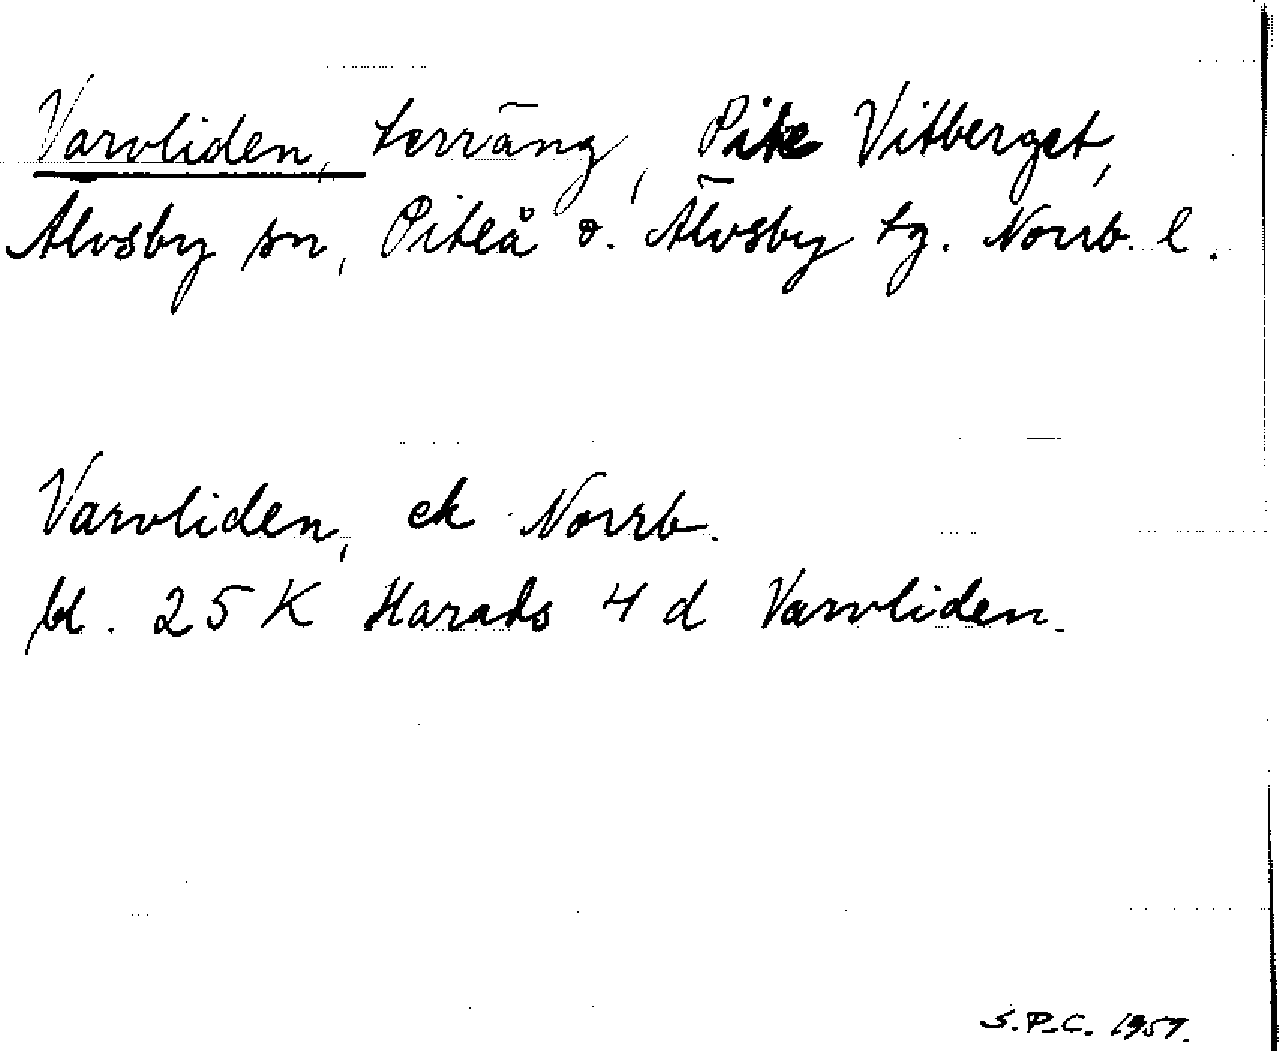 Varvliden, terräng, Pite Vitberget,
Älvsby sn, Piteå o. Älvsby tg. Norrb. l.
Varvliden, ek Norrb.
bl. 25 K Harads 4 d Varvliden.
S.P.C. 1957.